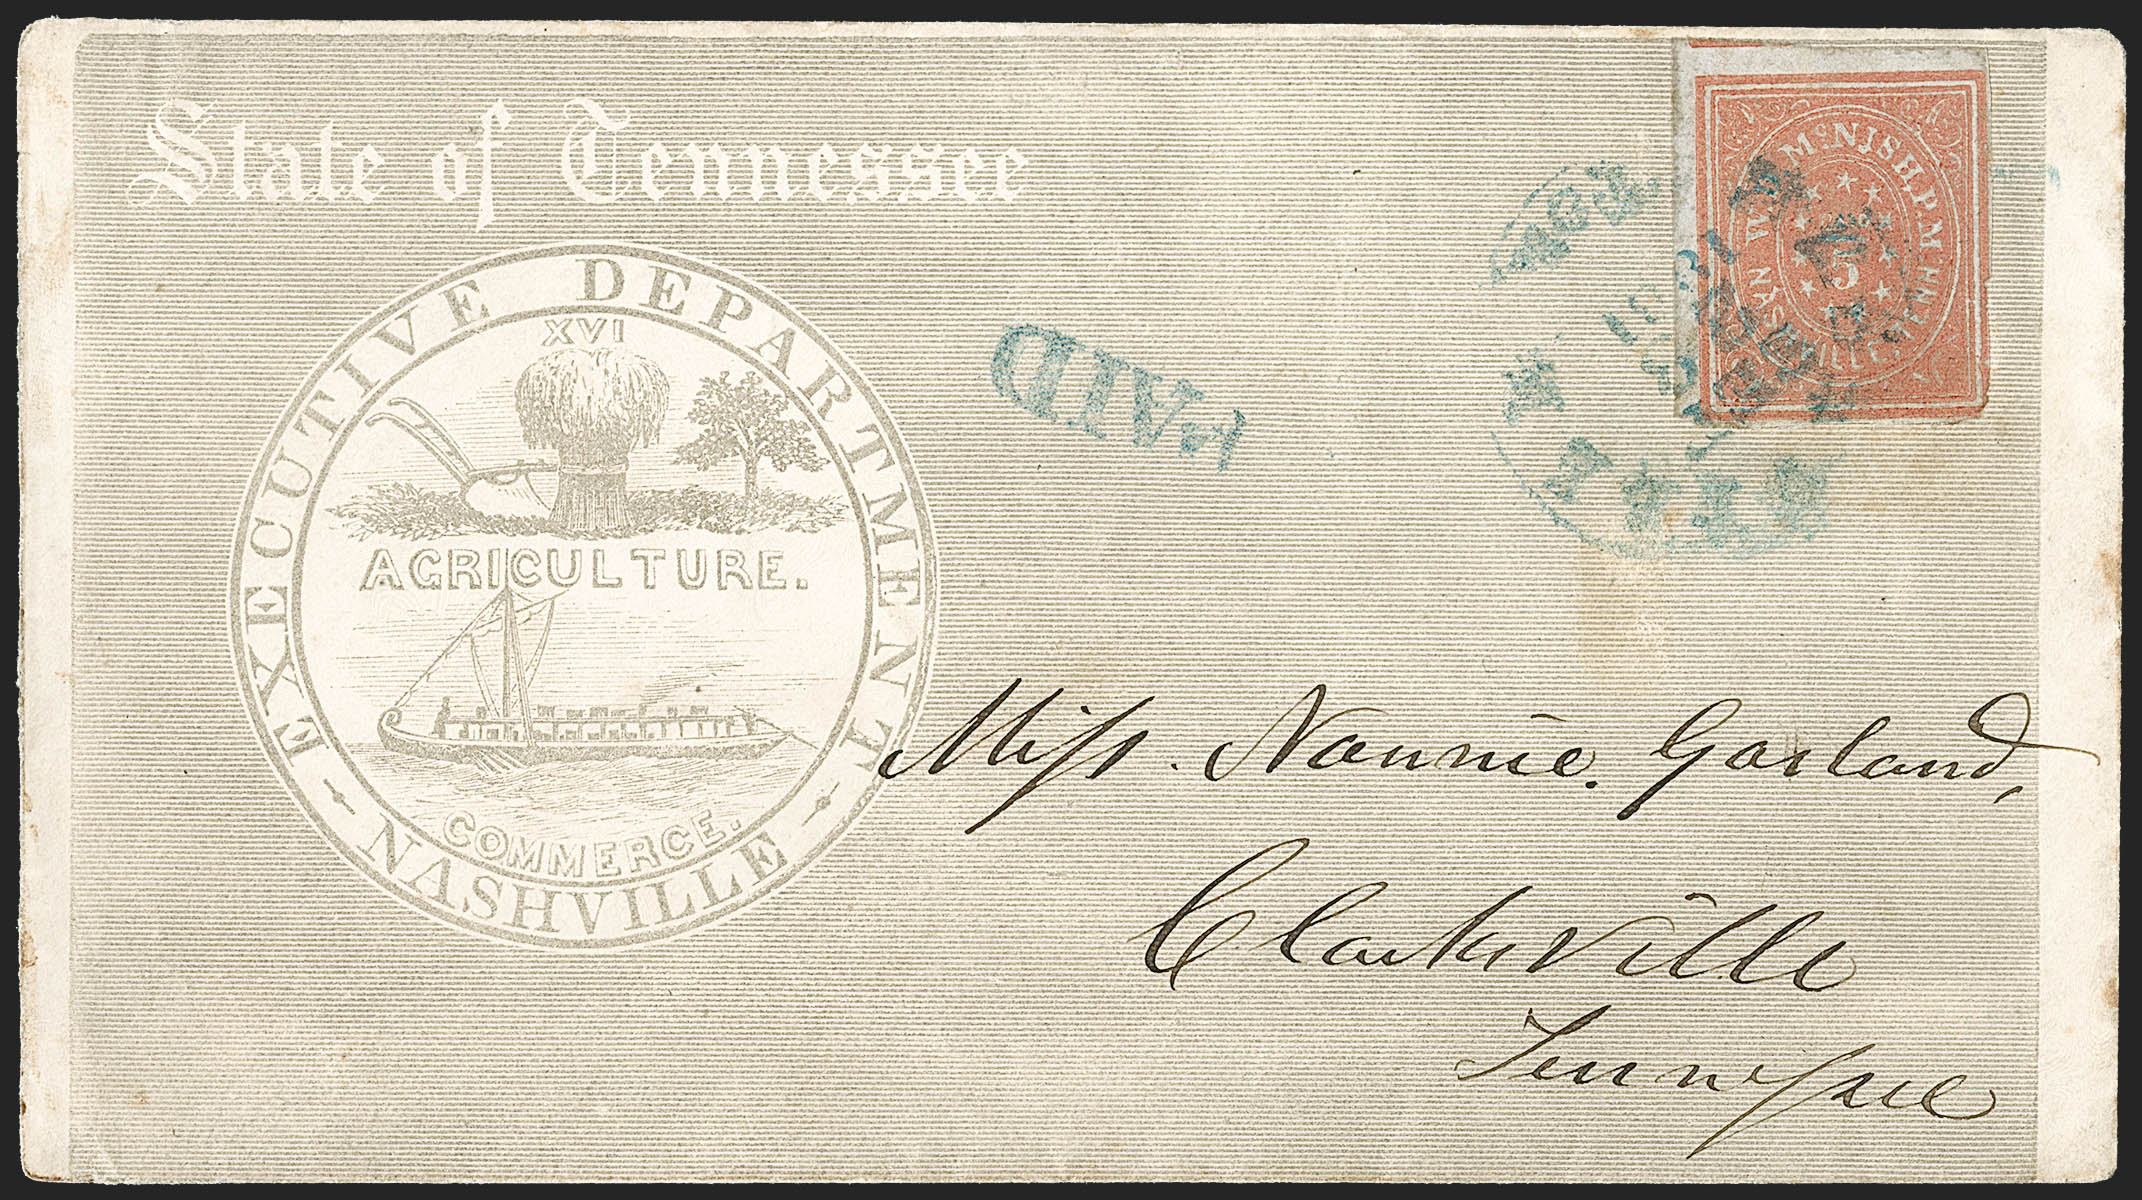 State of Tennessee
EXECUTIVE DEPARTMENT
XVI
AGRICULTURE.
COMMERCE.
- NASHVILLE -
PAID
W.D. McNISH, P.M.
5
NASHVILLE, TENN.
Miss. Nannie. Garland,
Clarksville
Tennessee